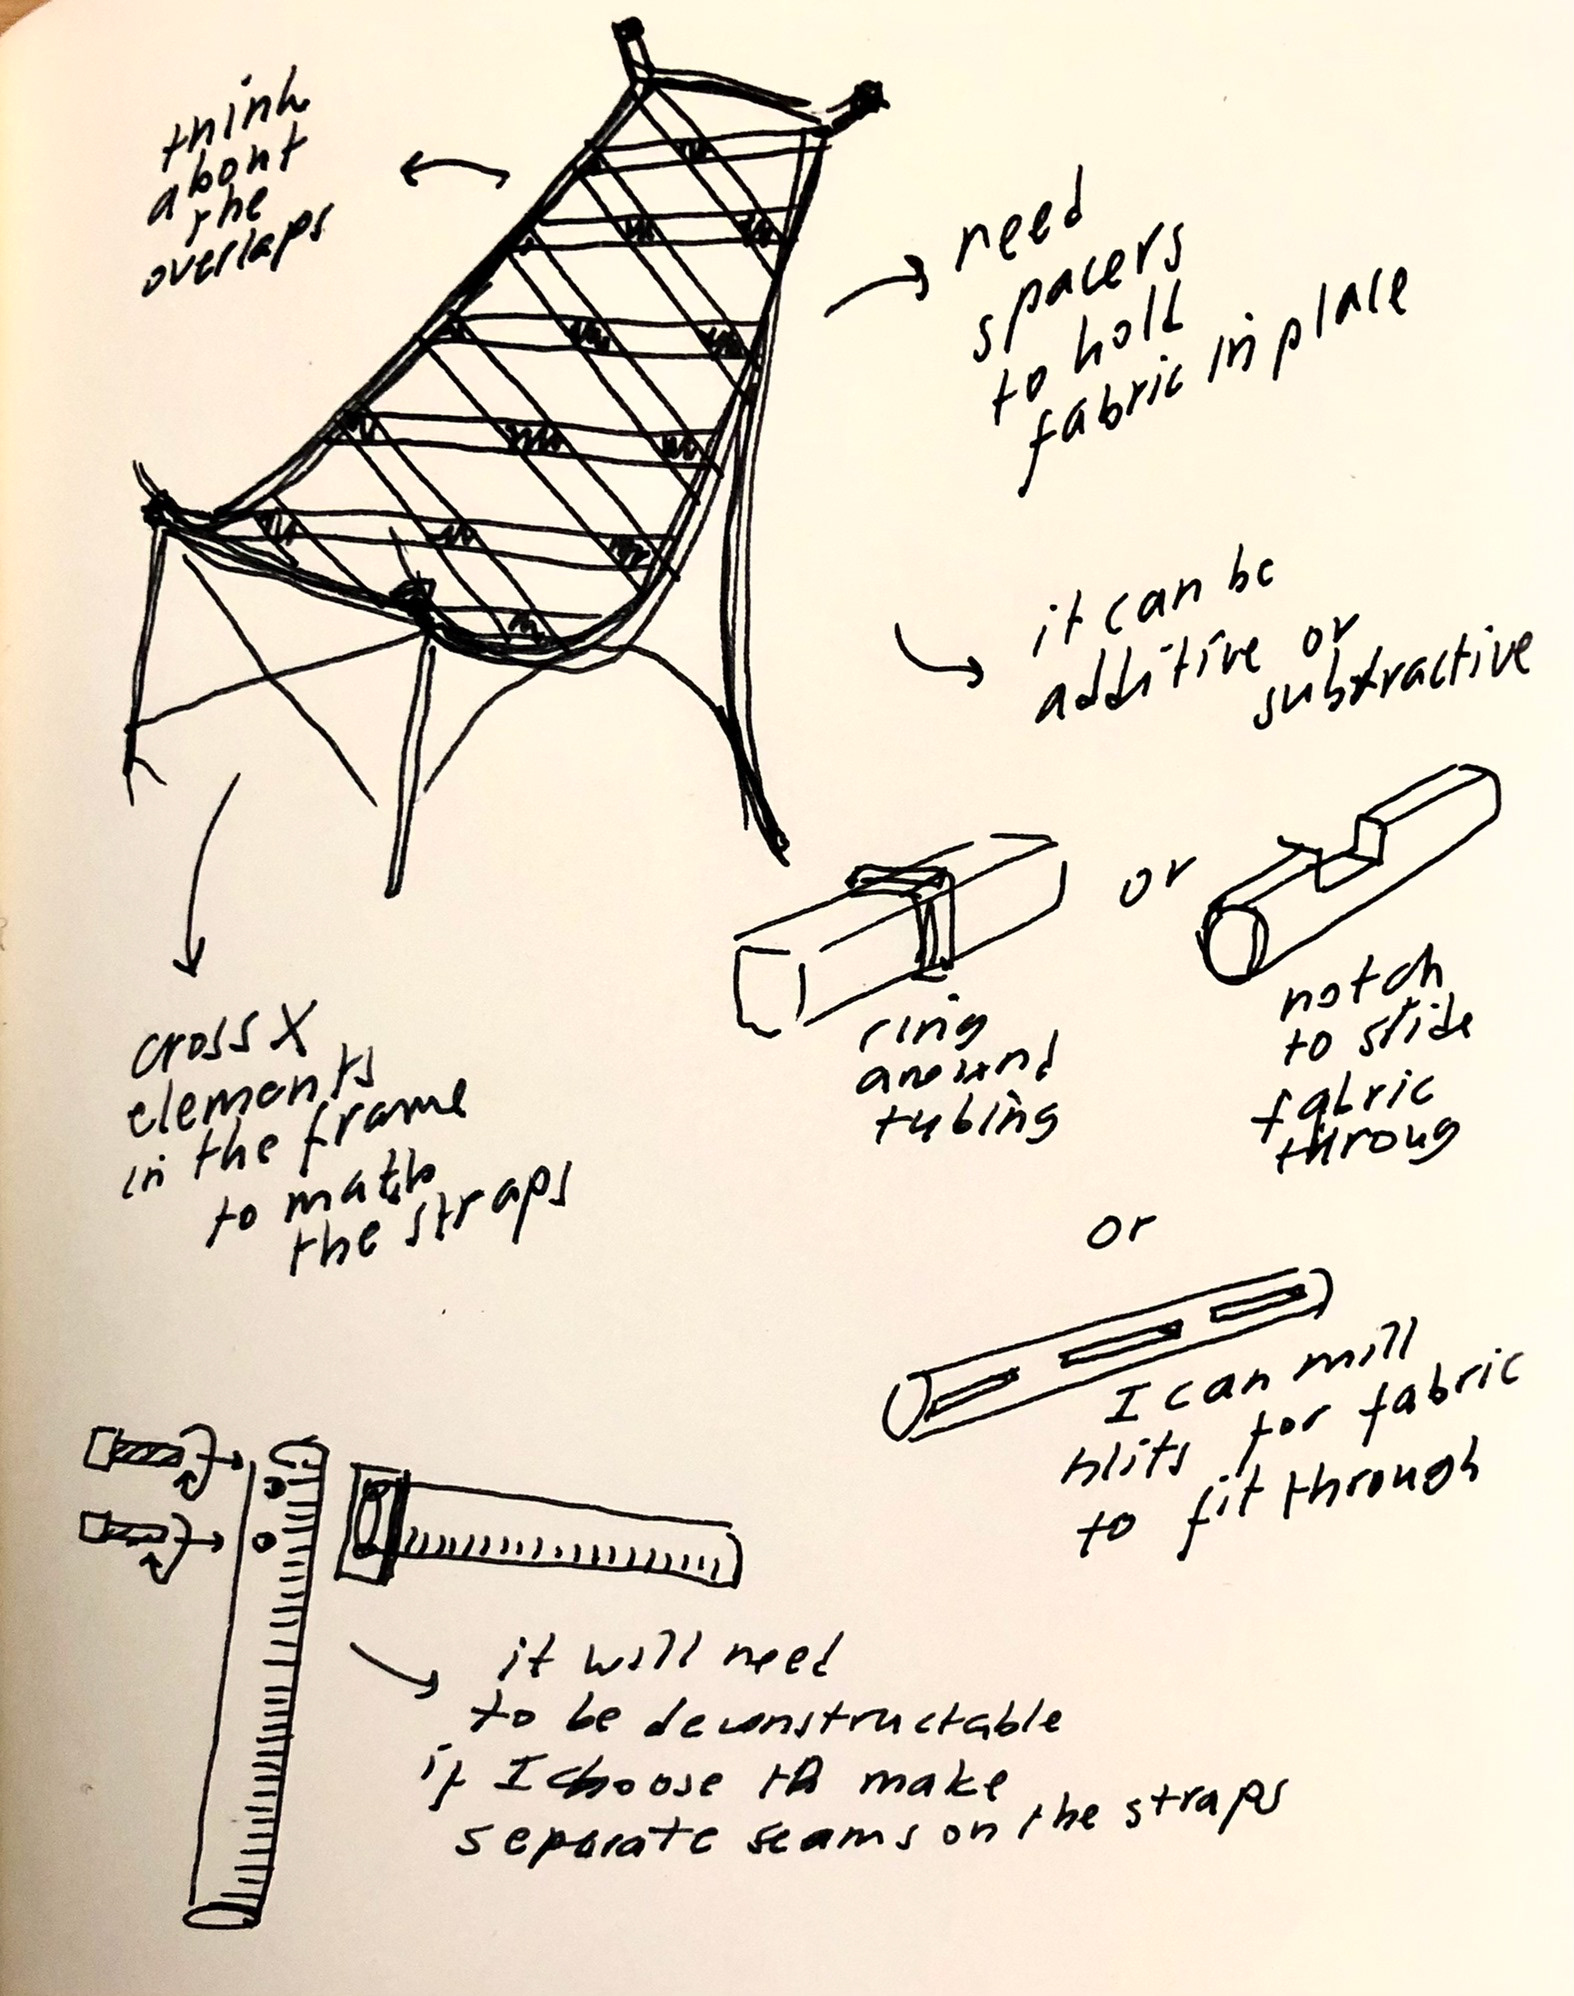 think
about
the
overlaps
need
spacers
to hold
fabric in place
it can be
additive or
subtractive
or
ring
around
tubing
notch
to slide
fabric
throug
cross X
elements
in the frame
to math
the straps
or
I can mill
slits for fabric
to fit through
it will need
to be deconstructable
if I choose to make
separate seams on the straps